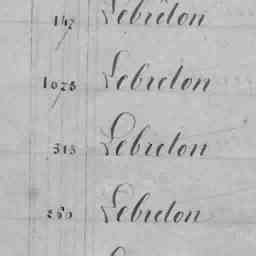 147 Lebreton
1028 Lebreton
313 Lebreton
260 Lebreton